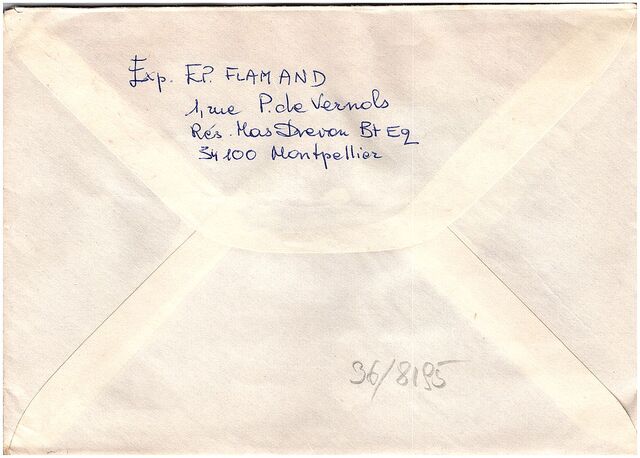 Exp. E.P. FLAMAND
1, rue P. de Vernols
Rés. Mas Drevon Bt E9
34100 Montpellier
36/8195